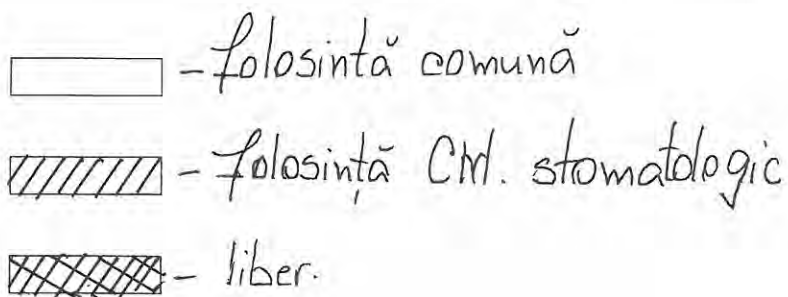 - folosintă comună
- folosință Cbt. stomatologic
- liber.